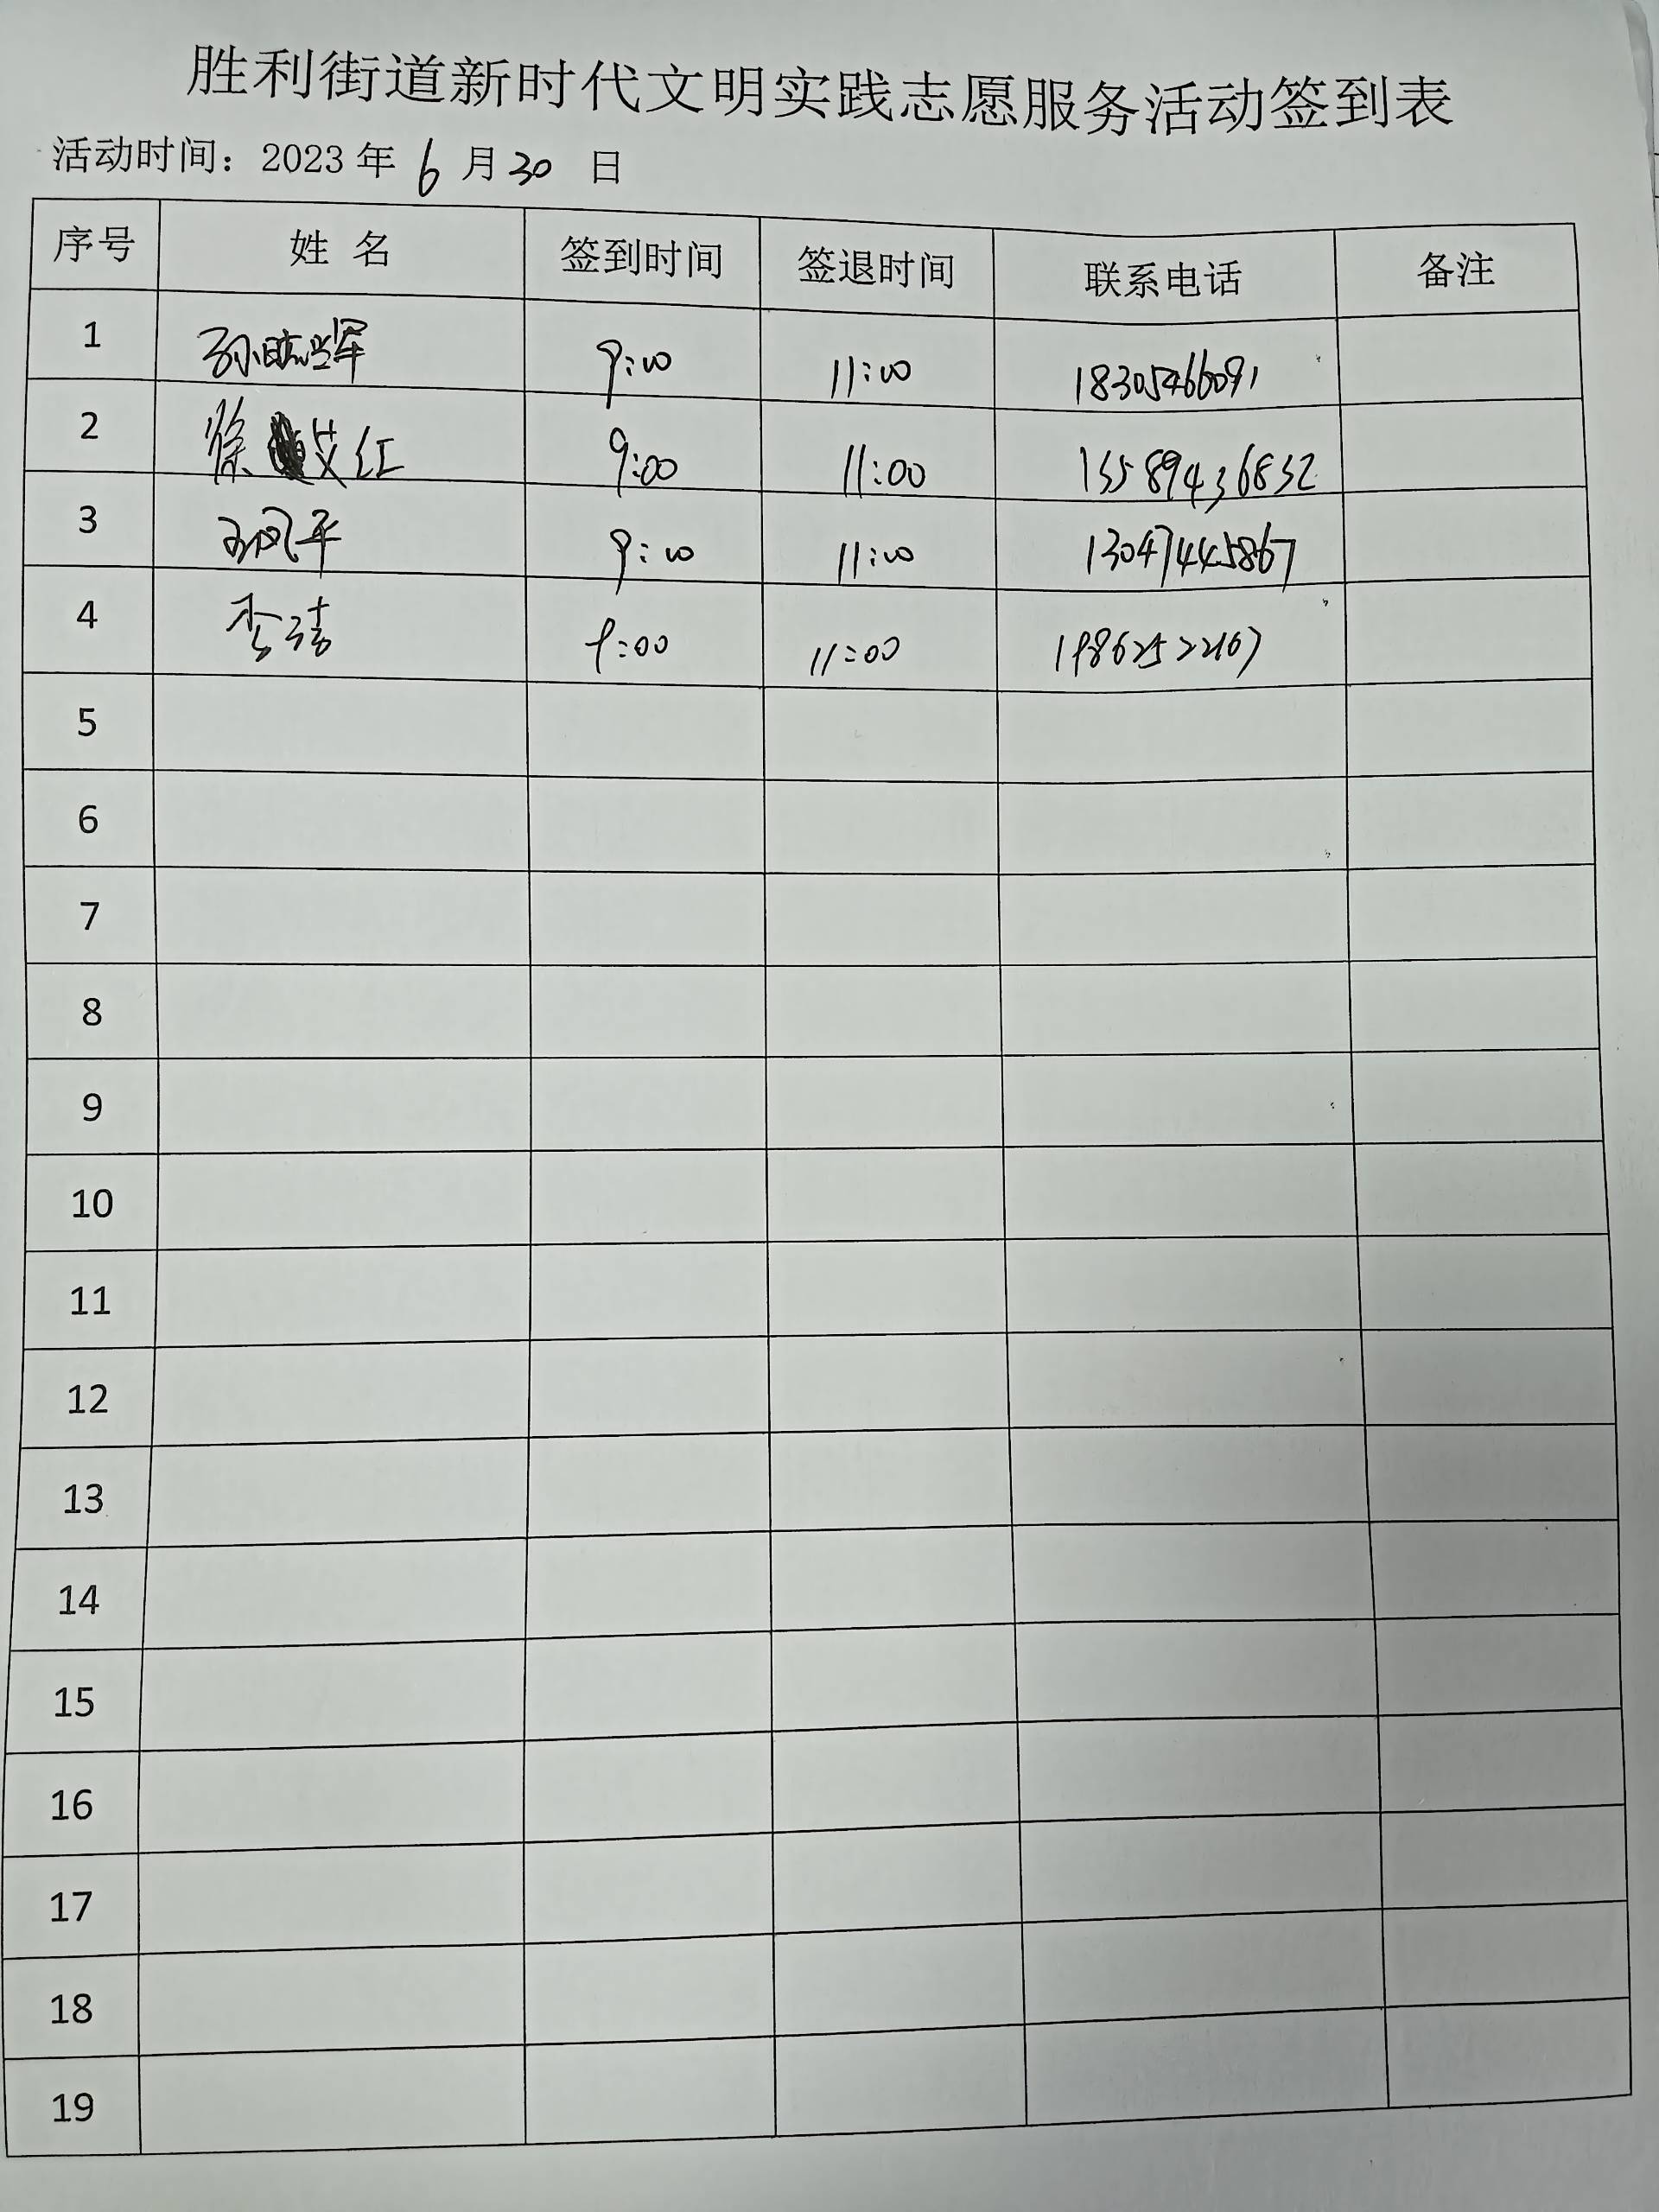 胜利街道新时代文明实践志愿服务活动签到表
活动时间：2023 年 6 月 30 日
序号 姓 名 签到时间 签退时间 联系电话 备注
1 孙 9:00 11:00 18305466091
2 徐 艾红 9:00 11:00 15589436832
3 凤平 9:00 11:00 13047445867
4 李洁 9:00 11:00
5
6
7
8
9
10
11
12
13
14
15
16
17
18
19